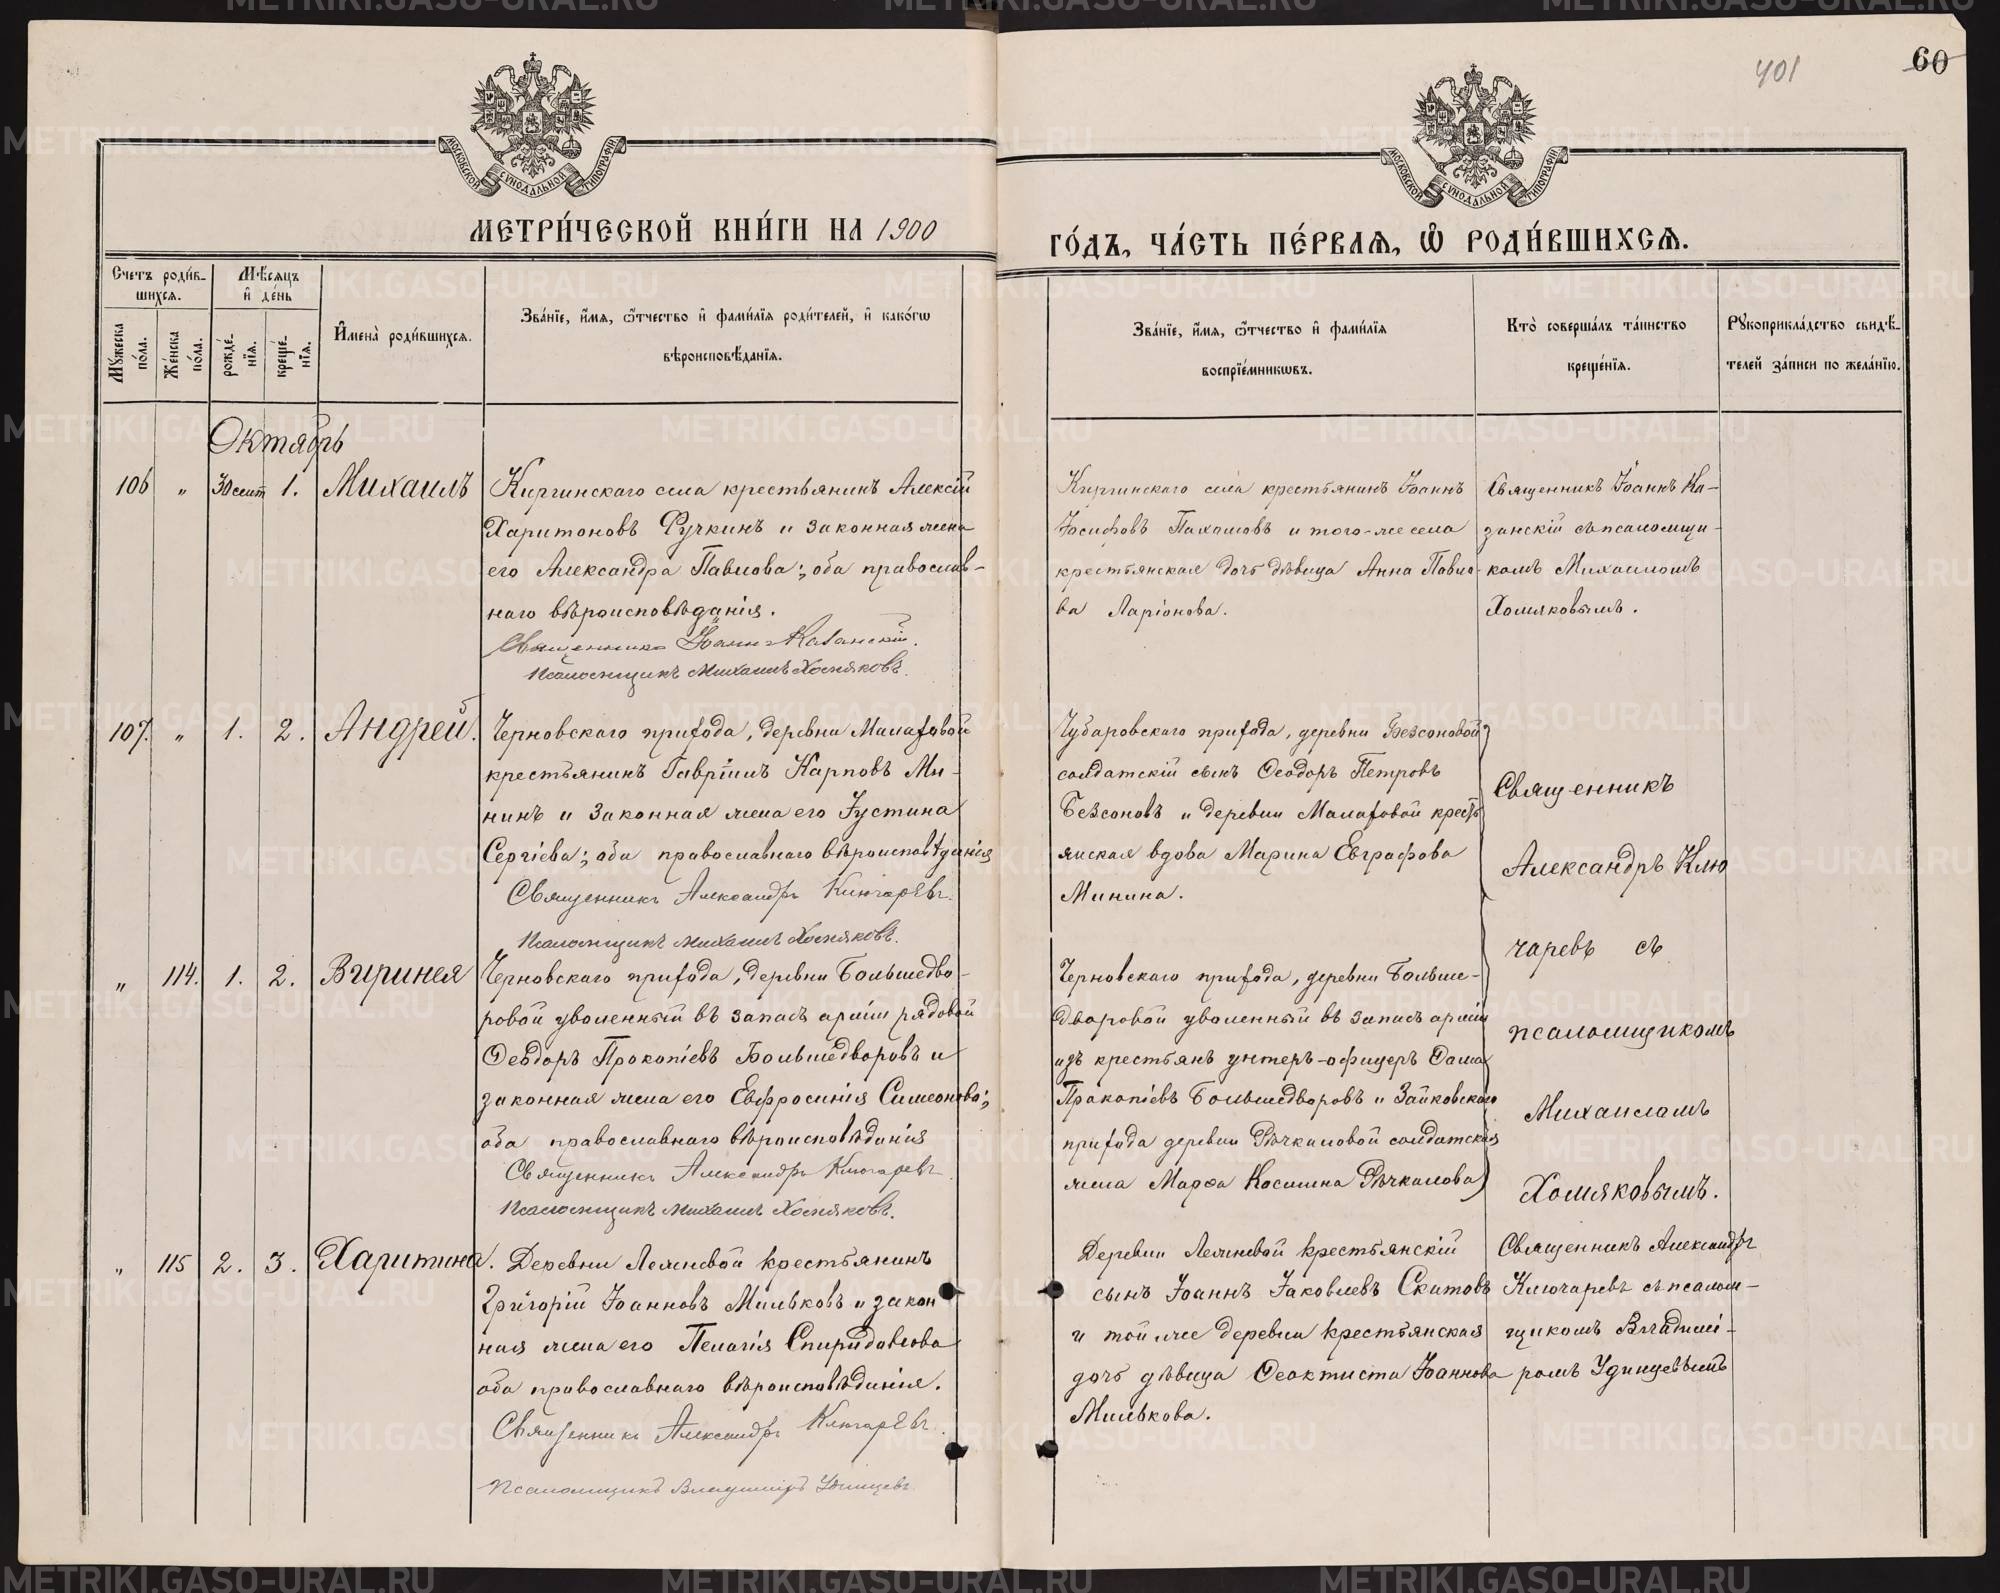 60
401
МОСКОВСКОЙ СѴНОДАЛЬНОЙ ТИПОГРАФІИ
МОСКОВСКОЙ СѴНОДАЛЬНОЙ ТИПОГРАФІИ
МЕТРИ́ЧЕСКОЙ КНИ́ГИ НА 1900
ГО́ДЪ, ЧА́СТЬ ПЕ́РВАЯ, Ѽ РОДИ́ВШИХСЯ.
Счетъ роди́в-
шихся.
Мꙋжеска по́ла.
Же́нска по́ла.
Мѣ́сяцъ
и҆ де́нь
рожде́-
нїя.
креще́-
нїя.
И҆мена̀ роди́вшихся.
Зва́нїе, и҆́мя, ѻ҆́тчество и҆ фами́лїя роди́телей, и҆ како́гѡ
вѣроисповѣ́данїя.
Зва́нїе, и҆́мя, ѻ҆́тчество и҆ фами́лїя
воспрїе́мникѡвъ.
Кто̀ соверша́лъ та́инство
креще́нїя.
Рꙋкоприкла́дство свидѣ́-
телей за́писи по жела́нїю.
Октябрь
106 " 30 сент 1. Михаилъ
Киргинскаго села крестьянинъ Алексій
Харитоновъ Ручкинъ и законная жена
его Александра Павлова; оба православ-
наго вѣроисповѣданія.
Священникъ Іоаннъ Казанскій.
Псаломщикъ Михаилъ Хомяковъ.
Киргинскаго села крестьянинъ Іоаннъ
Іосифовъ Пахомовъ и того-же села
крестьянская дочь дѣвица Анна Павло-
ва Ларіонова.
Священникъ Іоаннъ Ка-
занскій съ псаломщи-
комъ Михаиломъ
Хомяковымъ.
107. " 1. 2. Андрей.
Черновскаго прихода, деревни Малаховой
крестьянинъ Гавріилъ Карповъ Ми-
нинъ и законная жена его Іустина
Сергіева; оба православнаго вѣроисповѣданія
Священникъ Александръ Ключаревъ.
Псаломщикъ Михаилъ Хомяковъ.
Чубаровскаго прихода, деревни Безсоновой
солдатскій сынъ Ѳеодоръ Петровъ
Безсоновъ и деревни Малаховой кресть-
янская вдова Марина Евграфова
Минина.
" 114. 1. 2. Виринея
Черновскаго прихода, деревни Большедво-
ровой уволенный въ запасъ арміи рядовой
Ѳеодоръ Прокопіевъ Большедворовъ и
законная жена его Евфросинія Симеонова;
оба православнаго вѣроисповѣданія
Священникъ Александръ Ключаревъ
Псаломщикъ Михаилъ Хомяковъ.
Черновскаго прихода, деревни Больше-
дворовой уволенный въ запасъ арміи
изъ крестьянъ унтеръ-офицеръ Ѳома
Прокопіевъ Большедворовъ и Зайковскаго
прихода деревни Рѣчкаловой солдатская
жена Марѳа Косьмина Рѣчкалова
Священникъ
Александръ Клю
чаревъ съ
псаломщикомъ
Михаиломъ
Хомяковымъ.
" 115 2. 3. Харитина.
Деревни Лежневой крестьянинъ
Григорій Іоанновъ Мильковъ и закон
ная жена его Пелагія Спиридонова
оба православнаго вѣроисповѣданія.
Священникъ Александръ Ключаревъ.
Псаломщикъ Владиміръ Удинцевъ
Деревни Лежневой крестьянскій
сынъ Іоаннъ Іаковлевъ Скитовъ
и той же деревни крестьянская
дочь дѣвица Ѳеоктиста Іоаннова
Милькова.
Священникъ Александръ
Ключаревъ съ псалом-
щикомъ Владимі-
ромъ Удинцевымъ
METRIKI.GASO-URAL.RU